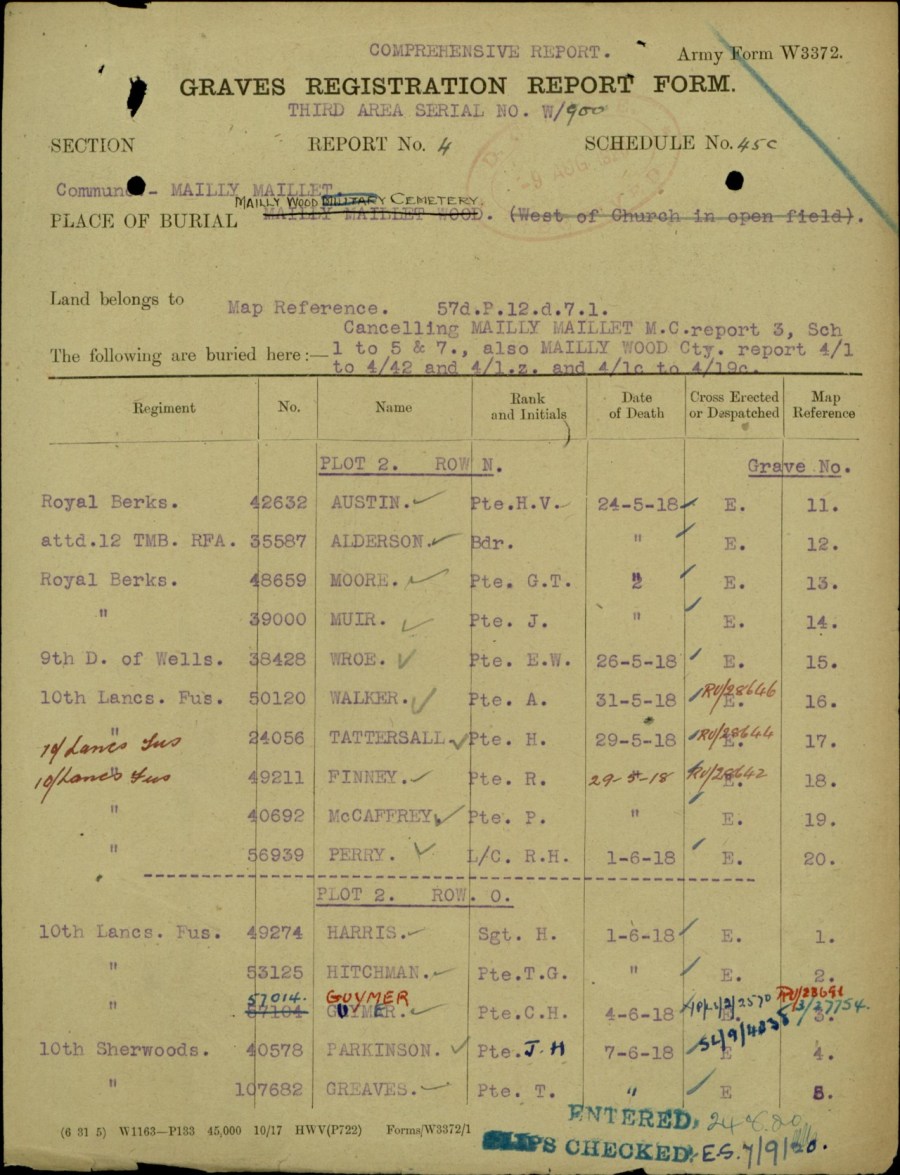 COMPREHENSIVE REPORT. Army Form W3372.
GRAVES REGISTRATION REPORT FORM.
THIRD AREA SERIAL NO. W/900
SECTION REPORT No. 4 SCHEDULE No. 45c
Commune - MAILLY MAILLET.
MAILLY WOOD MILITARY CEMETERY
PLACE OF BURIAL MAILLY MAILLET WOOD. (West of Church in open field).
Land belongs to Map Reference. 57d.P.12.d.7.1.
Cancelling MAILLY MAILLET M.C.report 3, Sch
The following are buried here:— 1 to 5 & 7., also MAILLY WOOD Cty. report 4/1
to 4/42 and 4/1.z. and 4/1c to 4/19c.
Regiment No. Name Rank and Initials Date of Death Cross Erected or Despatched Map Reference
PLOT 2. ROW N. Grave No.
Royal Berks. 42632 AUSTIN. Pte.H.V. 24-5-18 E. 11.
attd.12 TMB. RFA. 35587 ALDERSON. Bdr. " E. 12.
Royal Berks. 48659 MOORE. Pte. G.T. " E. 13.
" 39000 MUIR. Pte. J. " E. 14.
9th D. of Wells. 38428 WROE. Pte. E.W. 26-5-18 E. 15.
10th Lancs. Fus. 50120 WALKER. Pte. A. 31-5-18 RU/28646 E. 16.
10/Lancs Fus " 24056 TATTERSALL Pte. H. 29-5-18 RU/28644 E. 17.
10/Lancs Fus " 49211 FINNEY. Pte. R. 29-5-18 RU/28642 E. 18.
" 40692 McCAFFREY. Pte. P. " E. 19.
" 56939 PERRY. L/C. R.H. 1-6-18 E. 20.
PLOT 2. ROW. O.
10th Lancs. Fus. 49274 HARRIS. Sgt. H. 1-6-18 E. 1.
" 53125 HITCHMAN. Pte.T.G. " E. 2.
57014. GUYMER RU/28691
" 57104 GUYMER. Pte.C.H. 4-6-18 E. 3.
10th Sherwoods. 40578 PARKINSON. Pte. J.H 7-6-18 SL/9/4235 E 4.
" 107682 GREAVES. Pte. T. " E 5.
ENTERED, 24.8.20
(6 31 5) W1163—P133 45,000 10/17 HWV(P722) Forms/W3372/1
SLIPS CHECKED: E.S. 7/9/20.